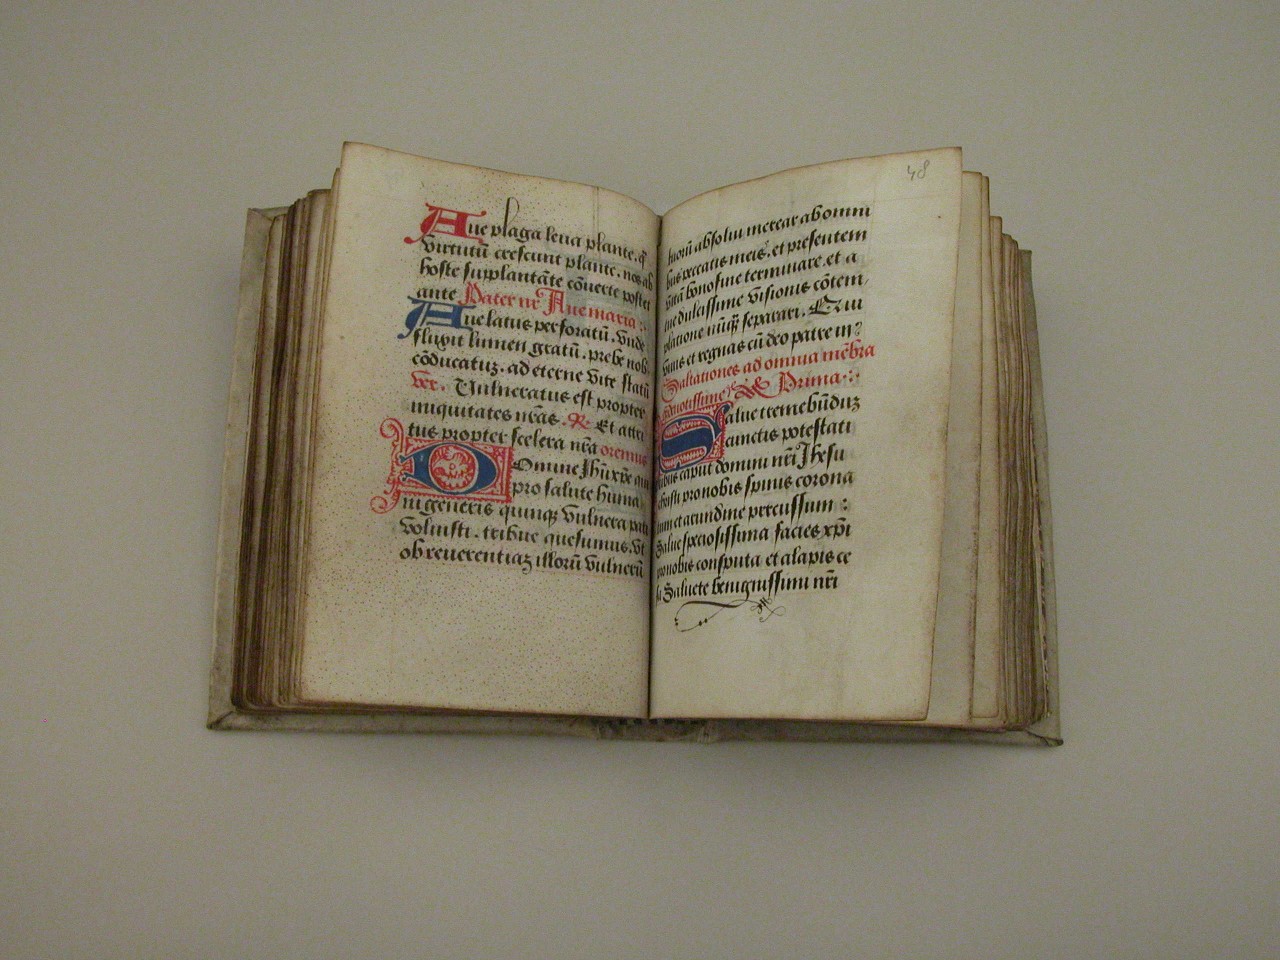 Aue plaga leua plante. q̄
virtutū crescunt plante. nos ab
hoste supplantāte cōuerte poster
ante Pater nr̄ Aue maria :
Aue latus perforatū. vnde
fluxit lumen gratū. prebe nob
cōducatuꝫ. ad eterne vite statū
ver. Vulneratus est propter
iniquitates nr̄as. R. Et attri
tus propter scelera nr̄a oremus
Domine Ihū xp̄e qui
pro salute huma
ni generis quinqꝫ vulnera pati
voluisti. tribue quesumus. vt
ob reuerentiaꝫ illorū vulnerū
48
tuorū absolui merear ab omni
bus peccatis meis. et presentem
vitā bono fine terminare. et a
tue dulcissime visionis cōtem
platione nūqꝫ separari. Qui
viuis et regnas cū deo patre in
Saltationes ad omnia mēbra
Prima :.
Salue tremebūduꝫ
cunctis potestati
bus caput domini nr̄i Ihesu
christi pro nobis spinis corona
tum et arundine percussum :
Salue speciosissima facies xp̄i
pro nobis consputa et alapis ce
sa Saluete benignissimi nr̄i